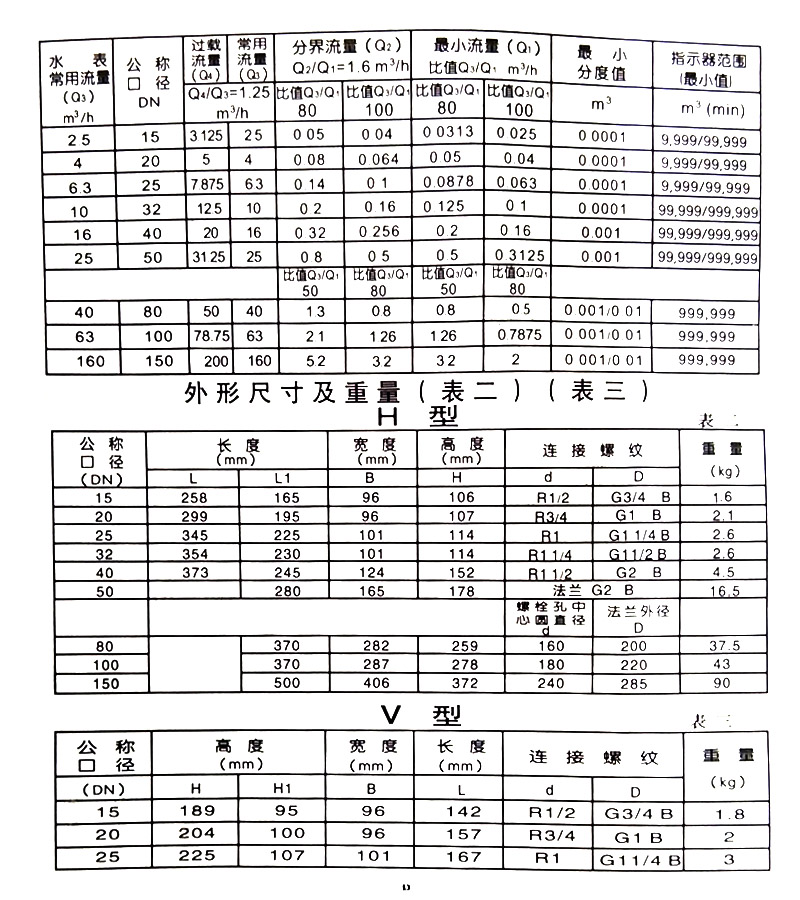 水 表 常用流量 (Q₃) m³/h | 公 称 口 径 DN | 过载流量 (Q₄) | 常用流量 (Q₃) | 分界流量 (Q₂) Q₂/Q₁=1.6 m³/h | 最小流量 (Q₁) 比值Q₃/Q₁ m³/h | 最 小 分度值 m³ | 指示器范围 (最小值) m³ (min)
Q₄/Q₃=1.25 m³/h | 比值Q₃/Q₁ 80 | 比值Q₃/Q₁ 100 | 比值Q₃/Q₁ 80 | 比值Q₃/Q₁ 100
2 5 | 15 | 3 125 | 2 5 | 0 05 | 0 04 | 0 0313 | 0 025 | 0 0001 | 9,999/99,999
4 | 20 | 5 | 4 | 0 08 | 0 064 | 0 05 | 0 04 | 0 0001 | 9,999/99,999
6.3 | 25 | 7 875 | 6 3 | 0 14 | 0 1 | 0.0878 | 0 063 | 0.0001 | 9,999/99,999
10 | 32 | 12 5 | 10 | 0 2 | 0 16 | 0 125 | 0 1 | 0 0001 | 99,999/999,999
16 | 40 | 20 | 16 | 0 32 | 0 256 | 0 2 | 0 16 | 0.001 | 99,999/999,999
25 | 50 | 31 25 | 25 | 0 8 | 0 5 | 0 5 | 0.3125 | 0 001 | 99,999/999,999
比值Q₃/Q₁ 50 | 比值Q₃/Q₁ 80 | 比值Q₃/Q₁ 50 | 比值Q₃/Q₁ 80
40 | 80 | 50 | 40 | 1 3 | 0 8 | 0 8 | 0 5 | 0 001/0 01 | 999,999
63 | 100 | 78.75 | 63 | 2 1 | 1 26 | 1 26 | 0.7875 | 0 001/0 01 | 999,999
160 | 150 | 200 | 160 | 5 2 | 3 2 | 3 2 | 2 | 0 001/0 01 | 999,999
外形尺寸及重量(表二)(表三)
H 型
表 二
公 称 口 径 (DN) | 长 度 (mm) | 宽 度 (mm) | 高 度 (mm) | 连 接 螺 纹 | 重 量 (kg)
L | L1 | B | H | d | D
15 | 258 | 165 | 96 | 106 | R1/2 | G3/4 B | 1.6
20 | 299 | 195 | 96 | 107 | R3/4 | G1 B | 2.1
25 | 345 | 225 | 101 | 114 | R1 | G1 1/4 B | 2.6
32 | 354 | 230 | 101 | 114 | R1 1/4 | G11/2 B | 2.6
40 | 373 | 245 | 124 | 152 | R1 1/2 | G2 B | 4.5
50 | 280 | 165 | 178 | 法兰 G2 B | 16.5
螺栓孔中心圆直径 d | 法兰外径 D
80 | 370 | 282 | 259 | 160 | 200 | 37.5
100 | 370 | 287 | 278 | 180 | 220 | 43
150 | 500 | 406 | 372 | 240 | 285 | 90
V 型
表 三
公 称 口 径 (DN) | 高 度 (mm) | 宽 度 (mm) | 长 度 (mm) | 连 接 螺 纹 | 重 量 (kg)
H | H1 | B | L | d | D
15 | 189 | 95 | 96 | 142 | R1/2 | G3/4 B | 1.8
20 | 204 | 100 | 96 | 157 | R3/4 | G1 B | 2
25 | 225 | 107 | 101 | 167 | R1 | G11/4 B | 3